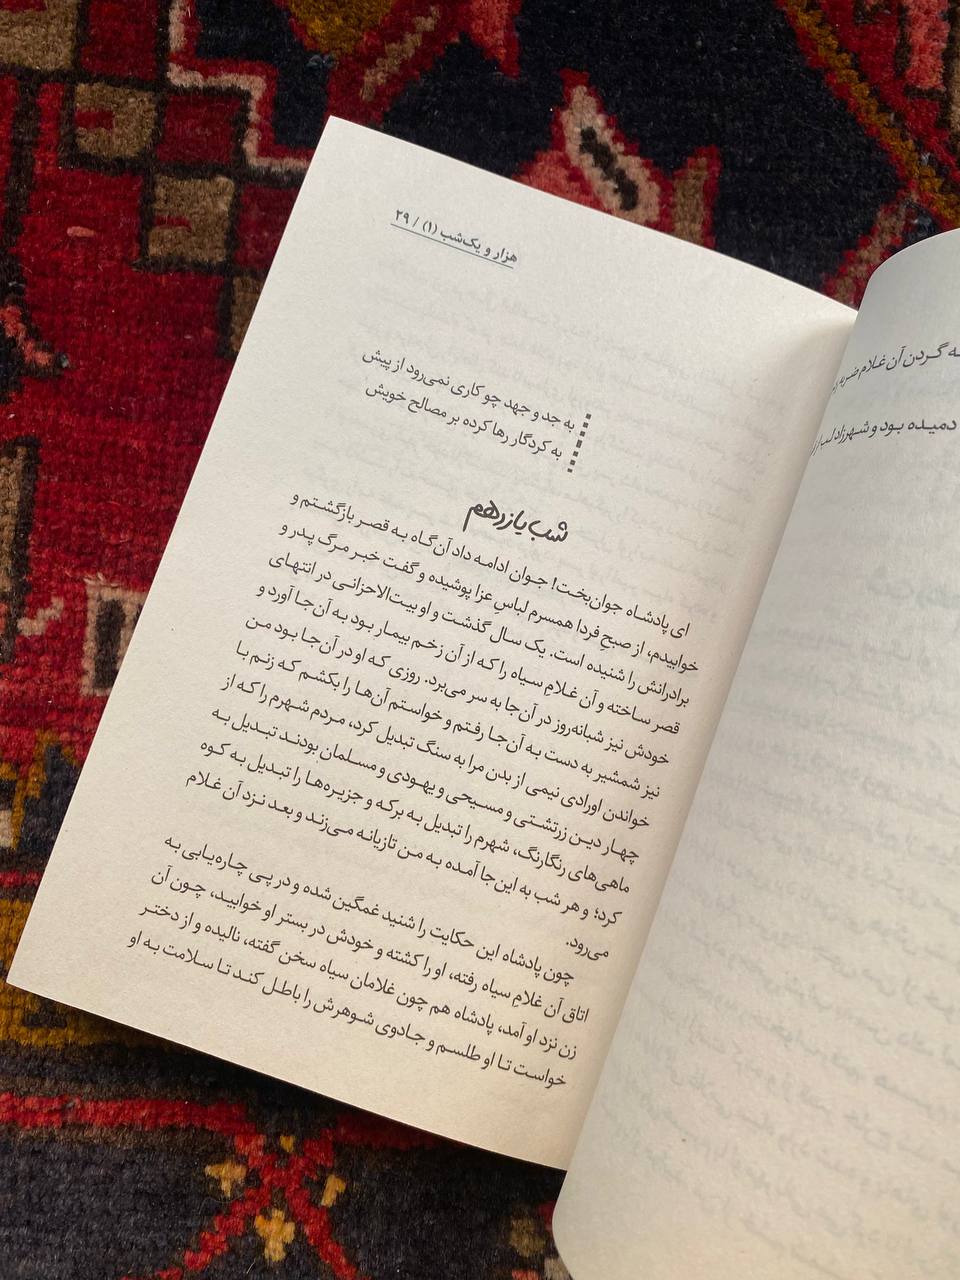 هزار و یک‌شب (۱) / ۲۹
به جد و جهد چو کاری نمی‌رود از پیش
به کردگار رها کرده بر مصالح خویش
شب یازدهم
ای پادشاه جوان‌بخت! جوان ادامه داد آن‌گاه به قصر بازگشتم و
خوابیدم، از صبحِ فردا همسرم لباسِ عزا پوشیده و گفت خبر مرگ پدر و
برادرانش را شنیده است. یک سال گذشت و او بیت‌الاحزانی در انتهای
قصر ساخته و آن غلامِ سیاه را که از آن زخم بیمار بود به آن‌جا آورد و
خودش نیز شبانه‌روز در آن‌جا به سر می‌برد. روزی که او در آن‌جا بود من
نیز شمشیر به دست به آن‌جا رفتم و خواستم آن‌ها را بکشم که زنم با
خواندن اورادی نیمی از بدن مرا به سنگ تبدیل کرد، مردم شهرم را که از
چهار دین زرتشتی و مسیحی و یهودی و مسلمان بودند تبدیل به
ماهی‌های رنگارنگ، شهرم را تبدیل به برکه و جزیره‌ها را تبدیل به کوه
کرد؛ و هر شب به این‌جا آمده به من تازیانه می‌زند و بعد نزد آن غلام
می‌رود.
چون پادشاه این حکایت را شنید غمگین شده و در پی چاره‌یابی به
اتاق آن غلامِ سیاه رفته، او را کشته و خودش در بستر او خوابید، چون آن
زن نزد او آمد، پادشاه هم چون غلامان سیاه سخن گفته، نالیده و از دختر
خواست تا او طلسم و جادوی شوهرش را باطل کند تا سلامت به او
گردن آن غلام
دمیده بود و شهرزاد لب از